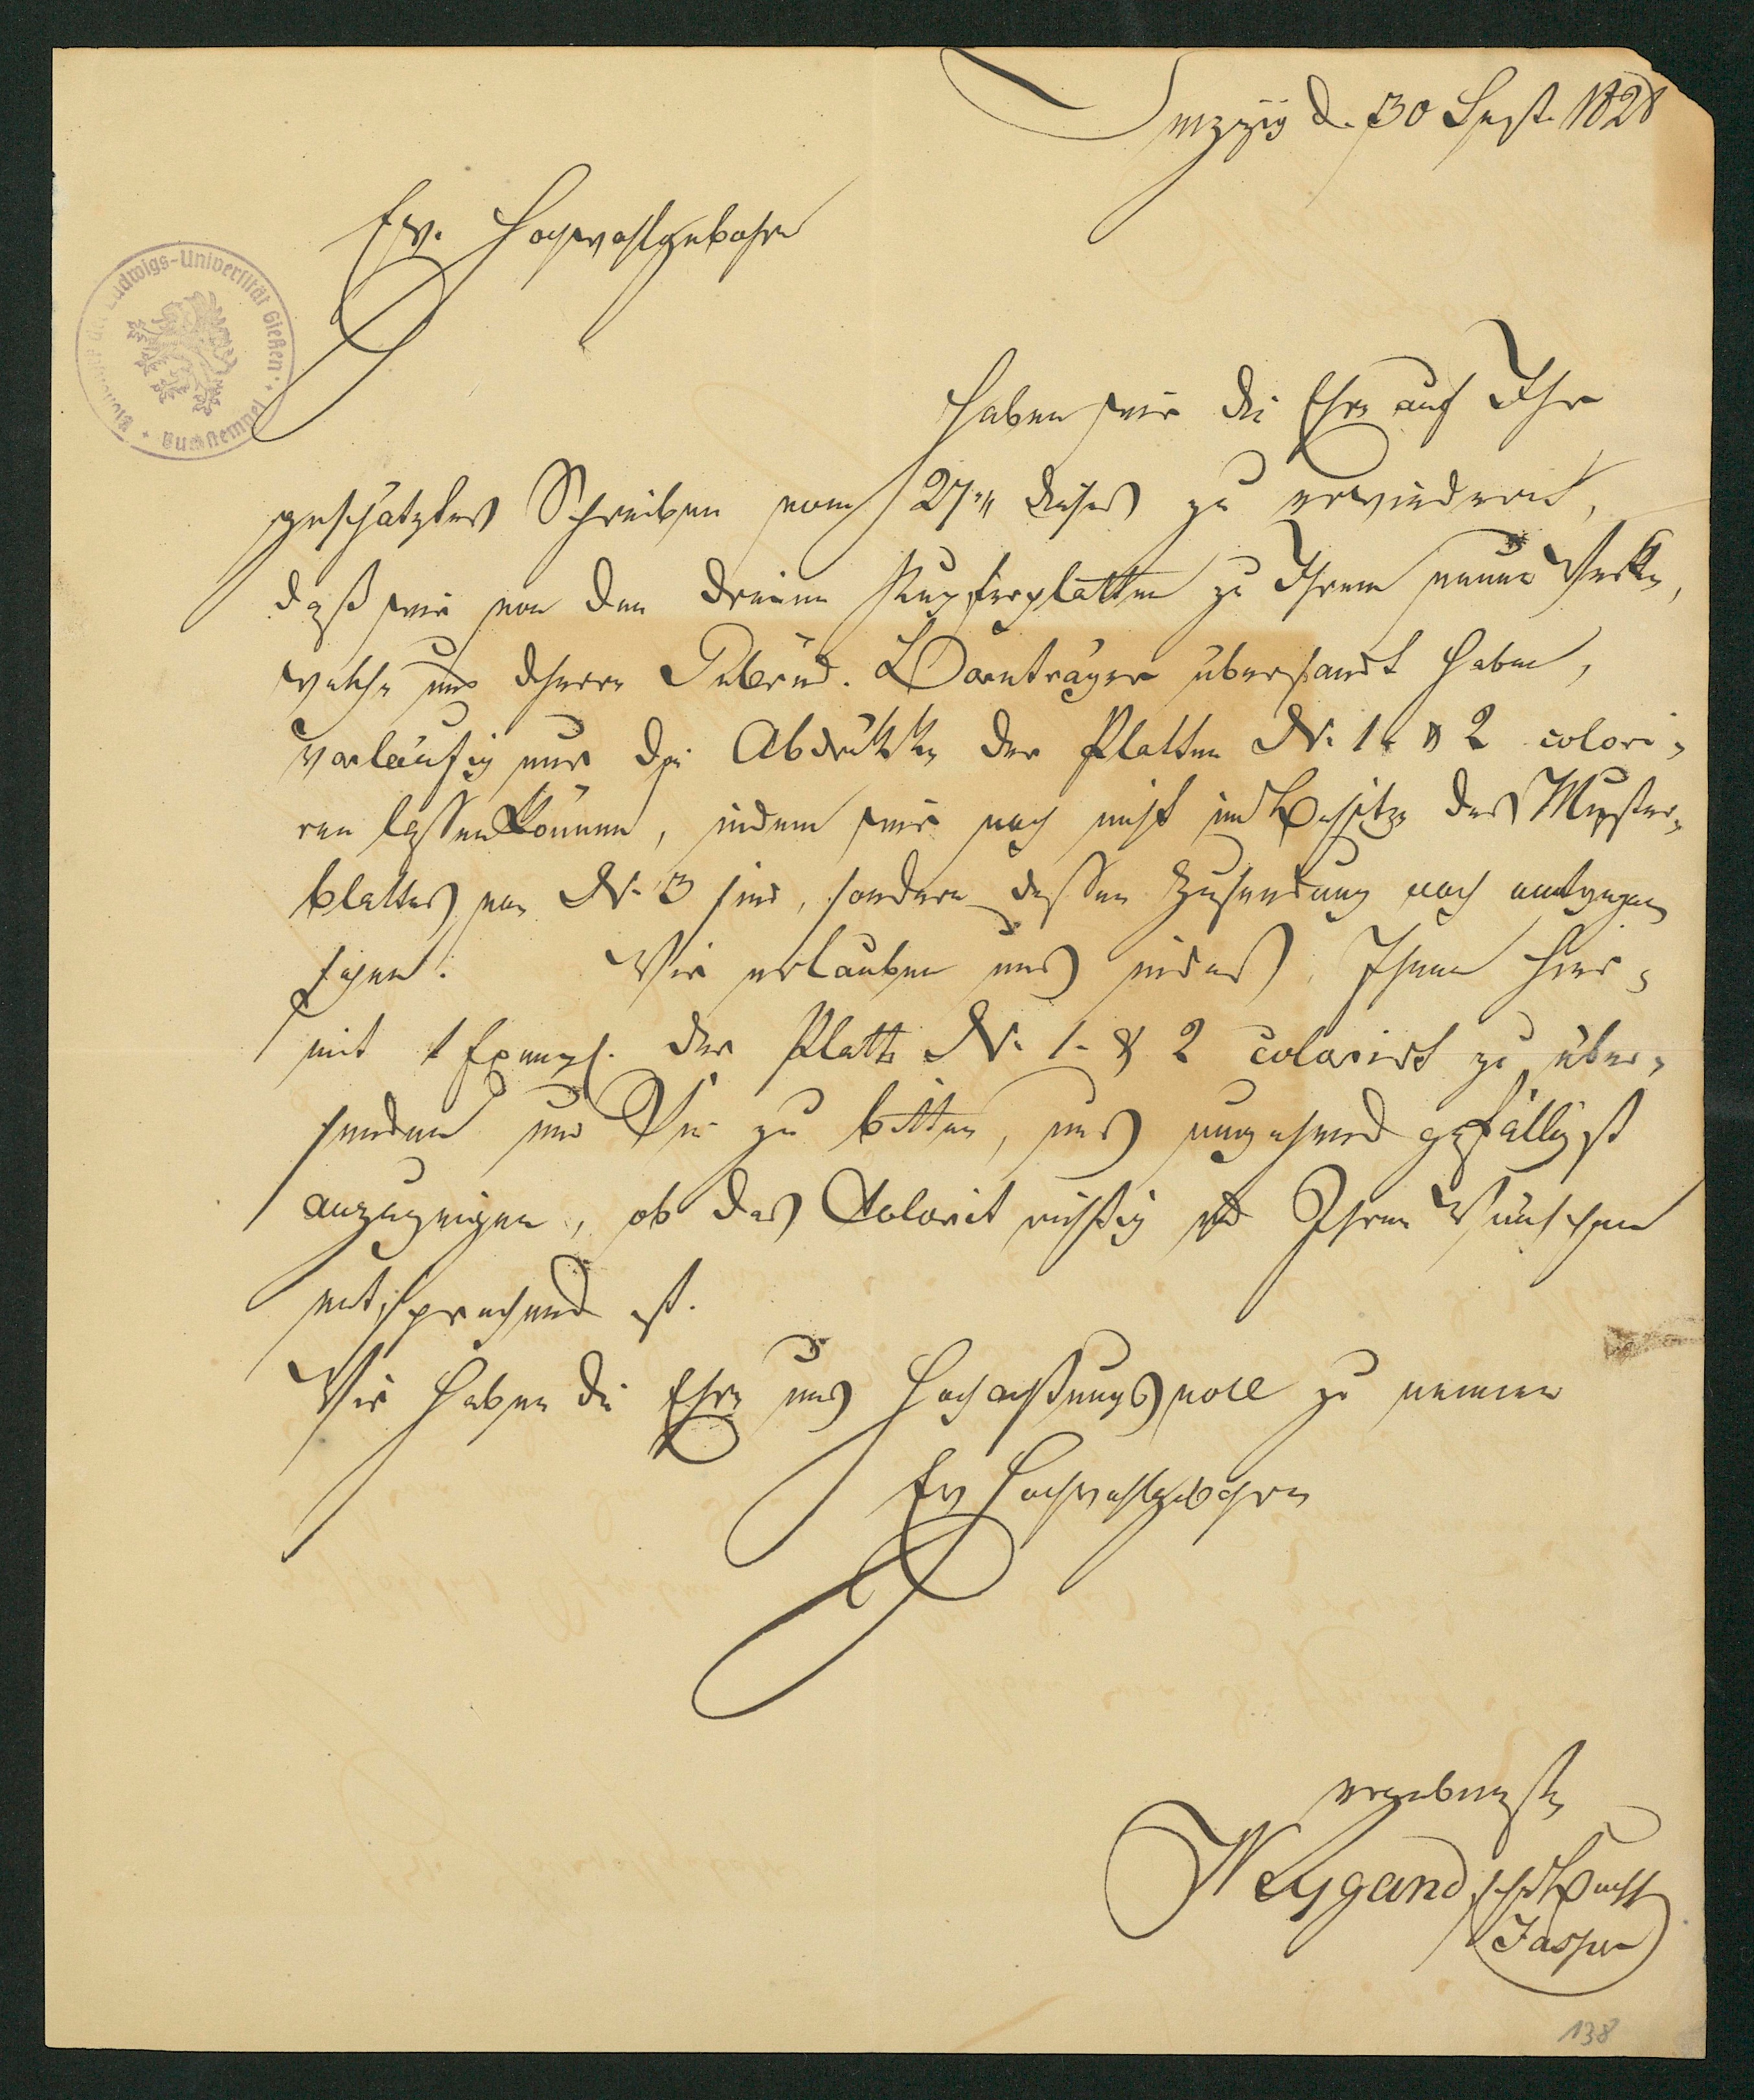 Leipzig d. 30 Sept. 1828
Ew. Hochwohlgebohrn
Ludwigs-Universität Gießen · Buchstempel ·
haben wir die Ehre auf Ihr
geschätztes Schreiben vom 27ten dieses zu erwiedern,
daß wir von den dreien Kupferplatten zu Ihrem neuen Werke,
welche uns Herrn Gebrüd. Borntraeger übersandt haben,
vorläufig nur die Abdrükke der Platten No. 1. & 2 colori-
ren lassen können, indem wir noch nicht im Besitze des Muster-
blattes von No. 3 sind, sondern dessen Zusendung noch entgegen
sehen. Wir erlauben uns indess Ihnen hier-
mit 1 Exempl. der Platte No. 1. & 2 colorirt zu über-
senden und Sie zu bitten, uns umgehend gefälligst
anzuzeigen, ob das Colorit richtig und Ihren Wünschen
entsprechend ist.
Wir haben die Ehre uns Hochachtungsvoll zu nennen
Ew Hochwohlgebohren
ergebenste
Weygandsche Buchh
Jasper
138